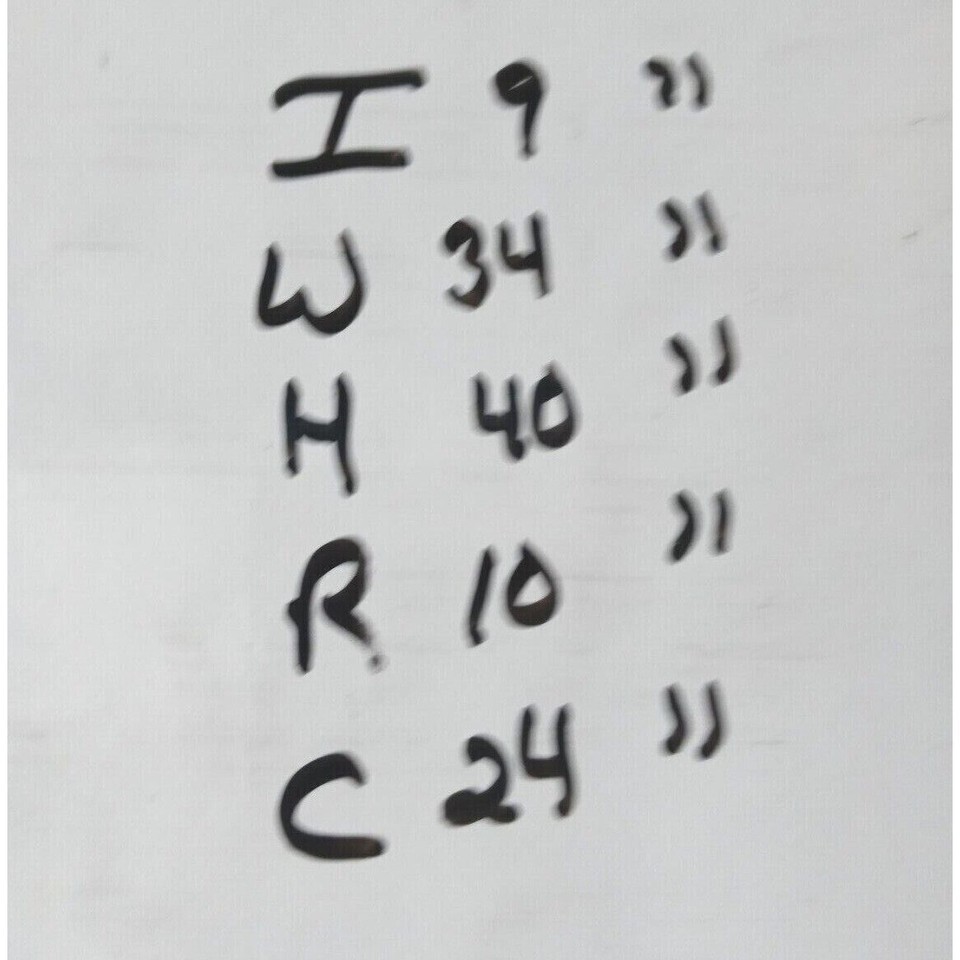 I 9 "
W 34 "
H 40 "
R 10 "
C 24 "